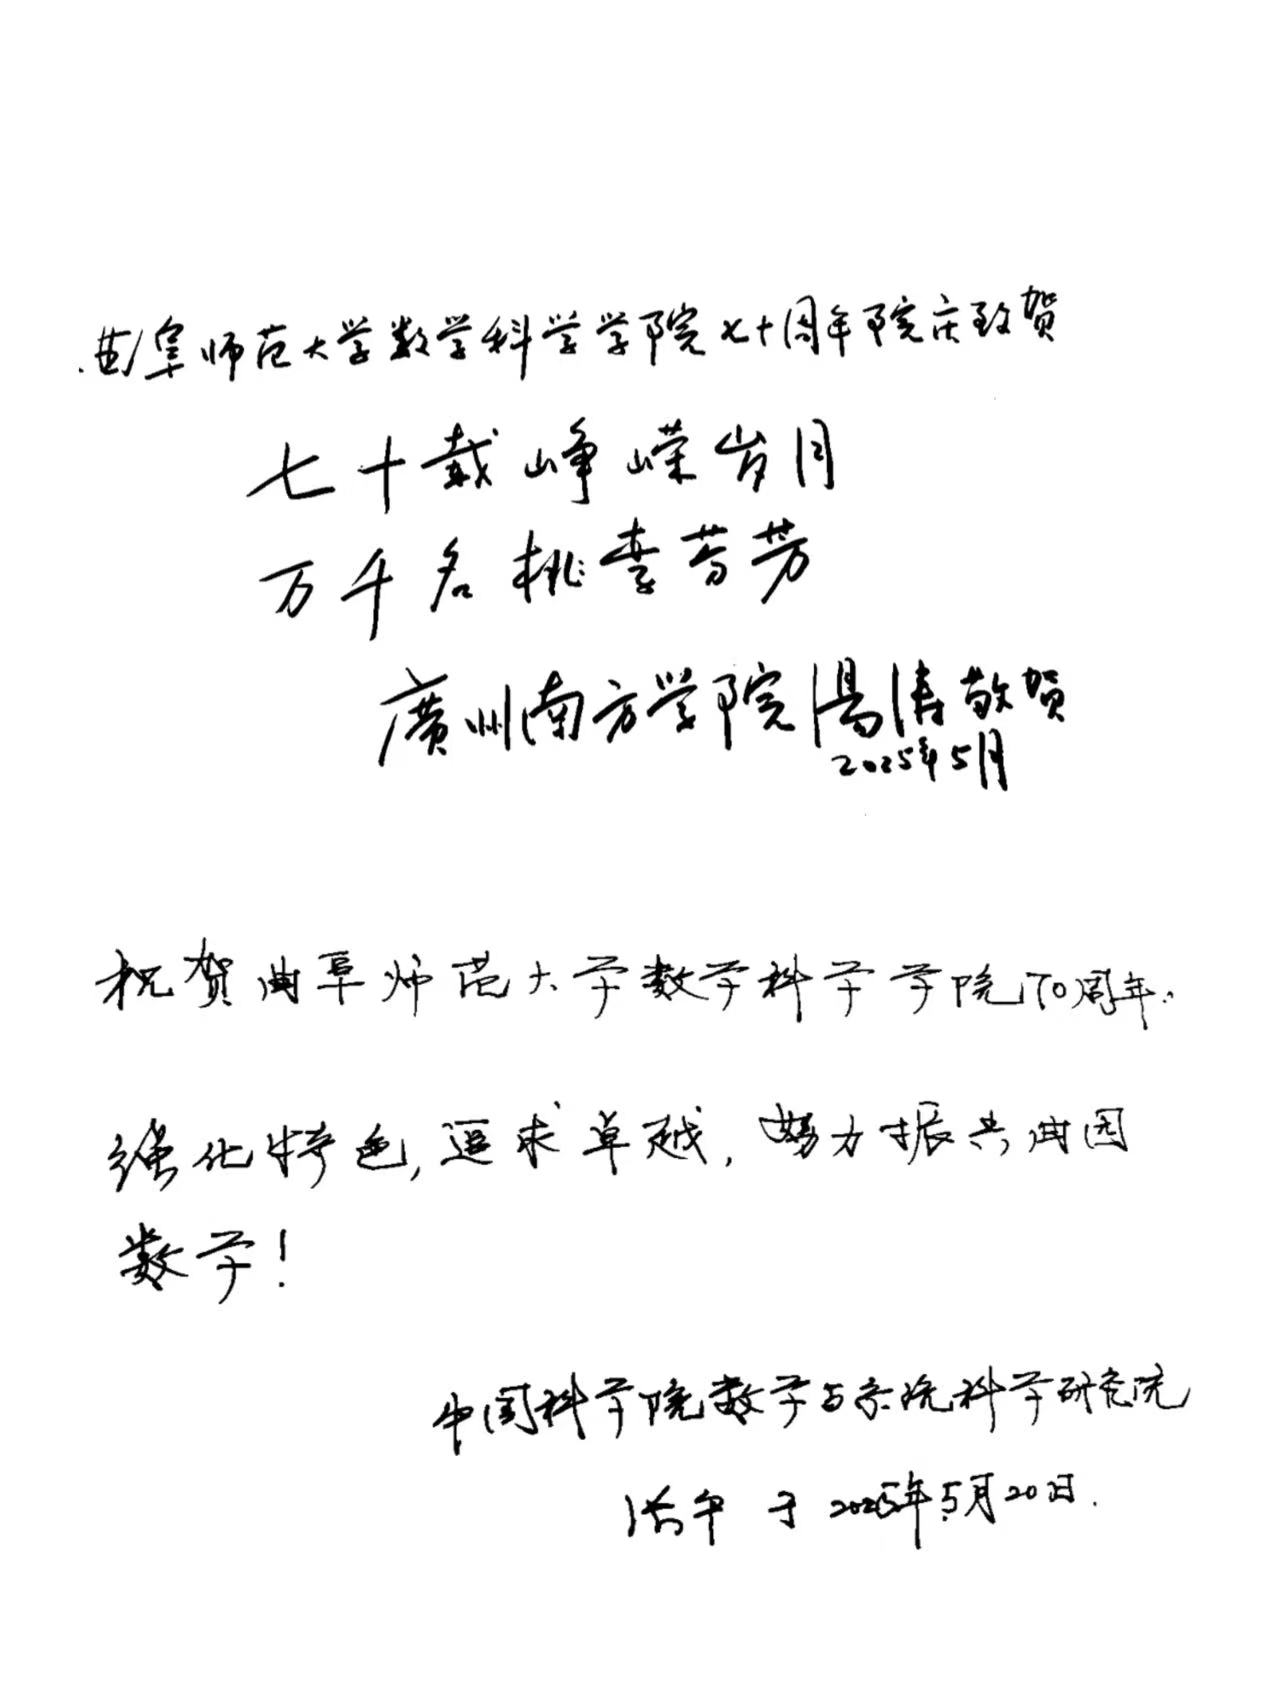 曲阜师范大学数学科学学院七十周年院庆致贺
七十载峥嵘岁月
万千名桃李芬芳
廣州南方学院汤涛敬贺
2025年5月
祝贺曲阜师范大学数学科学学院70周年:
强化特色,追求卓越,努力振兴曲园
数学!
中国科学院数学与系统科学研究院
于2025年5月20日.